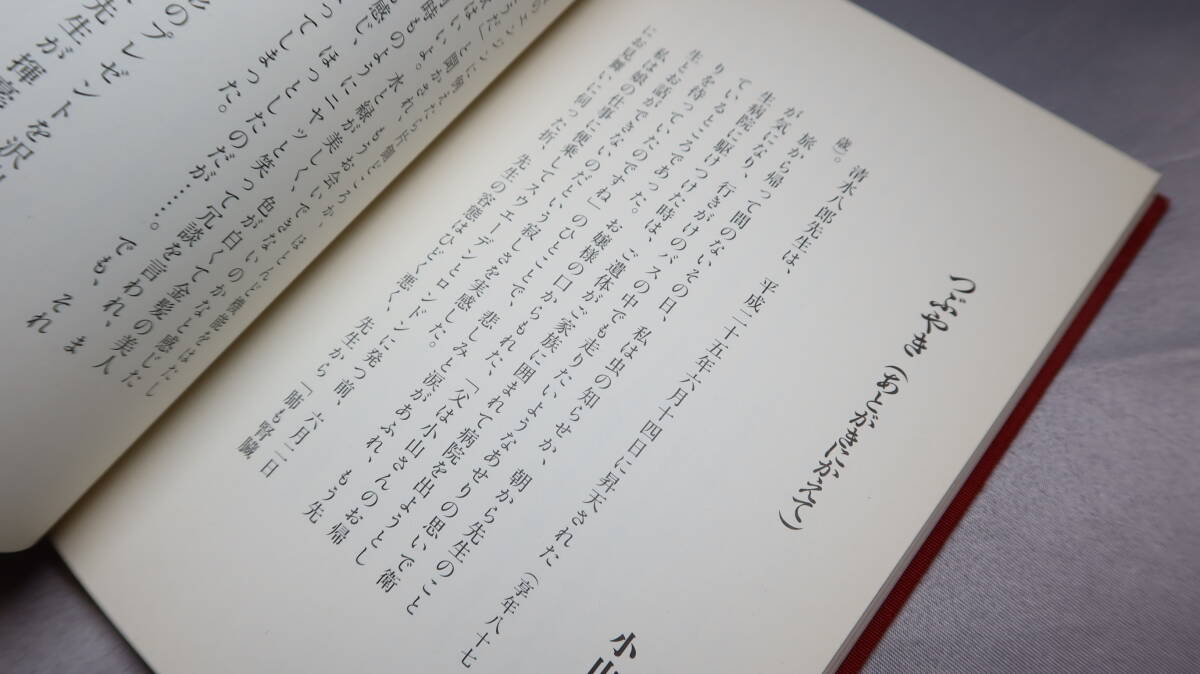 つぶやき(あとがきにかえて)
小山
清水八郎先生は、平成二十五年六月十四日に昇天された(享年八十七
歳)。
旅から帰って間のないその日、私は虫の知らせか、朝から先生のこと
が気になり、行きがけのバスの中でも走りたいようなあせりの思いで衛
生病院に駆けつけた時は、ご遺体がご家族に囲まれて病院を出ようとし
ているところであった。お嬢様の口からもれた、「父は小山さんのお帰
りを待っていたのですね」のひとことで、悲しみと涙があふれ、もう先
生とお話ができないのだという寂しさを実感した。
私は娘の仕事に便乗してスウエーデンとロンドンに発つ前、六月二日
にお見舞いに伺った折、先生の容態はひどく悪く、先生から「肺も腎臓
のエンジンに例えたら片側どころか、ほとんど機能をはたし
うだ」と聞かされ、もうお会いできないのかなと感じた
はいいよ。水と緑が美しく、色が白くて金髪の美人
時ものようにニヤッと笑って冗談を言われ、ま
感じ、ほっとしたのだが……。でも、それ
ってしまった。
のプレゼントを沢
先生が揮毫